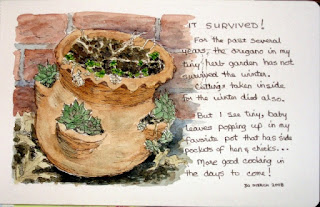 IT SURVIVED!
For the past several
years, the oregano in my
tiny herb garden has not
survived the winter.
Cuttings taken inside
for the winter died also.
But I see tiny, baby
leaves popping up in my
favorite pot that has side
pockets of hen & chicks...
More good cooking in
the days to come!
30 MARCH 2008